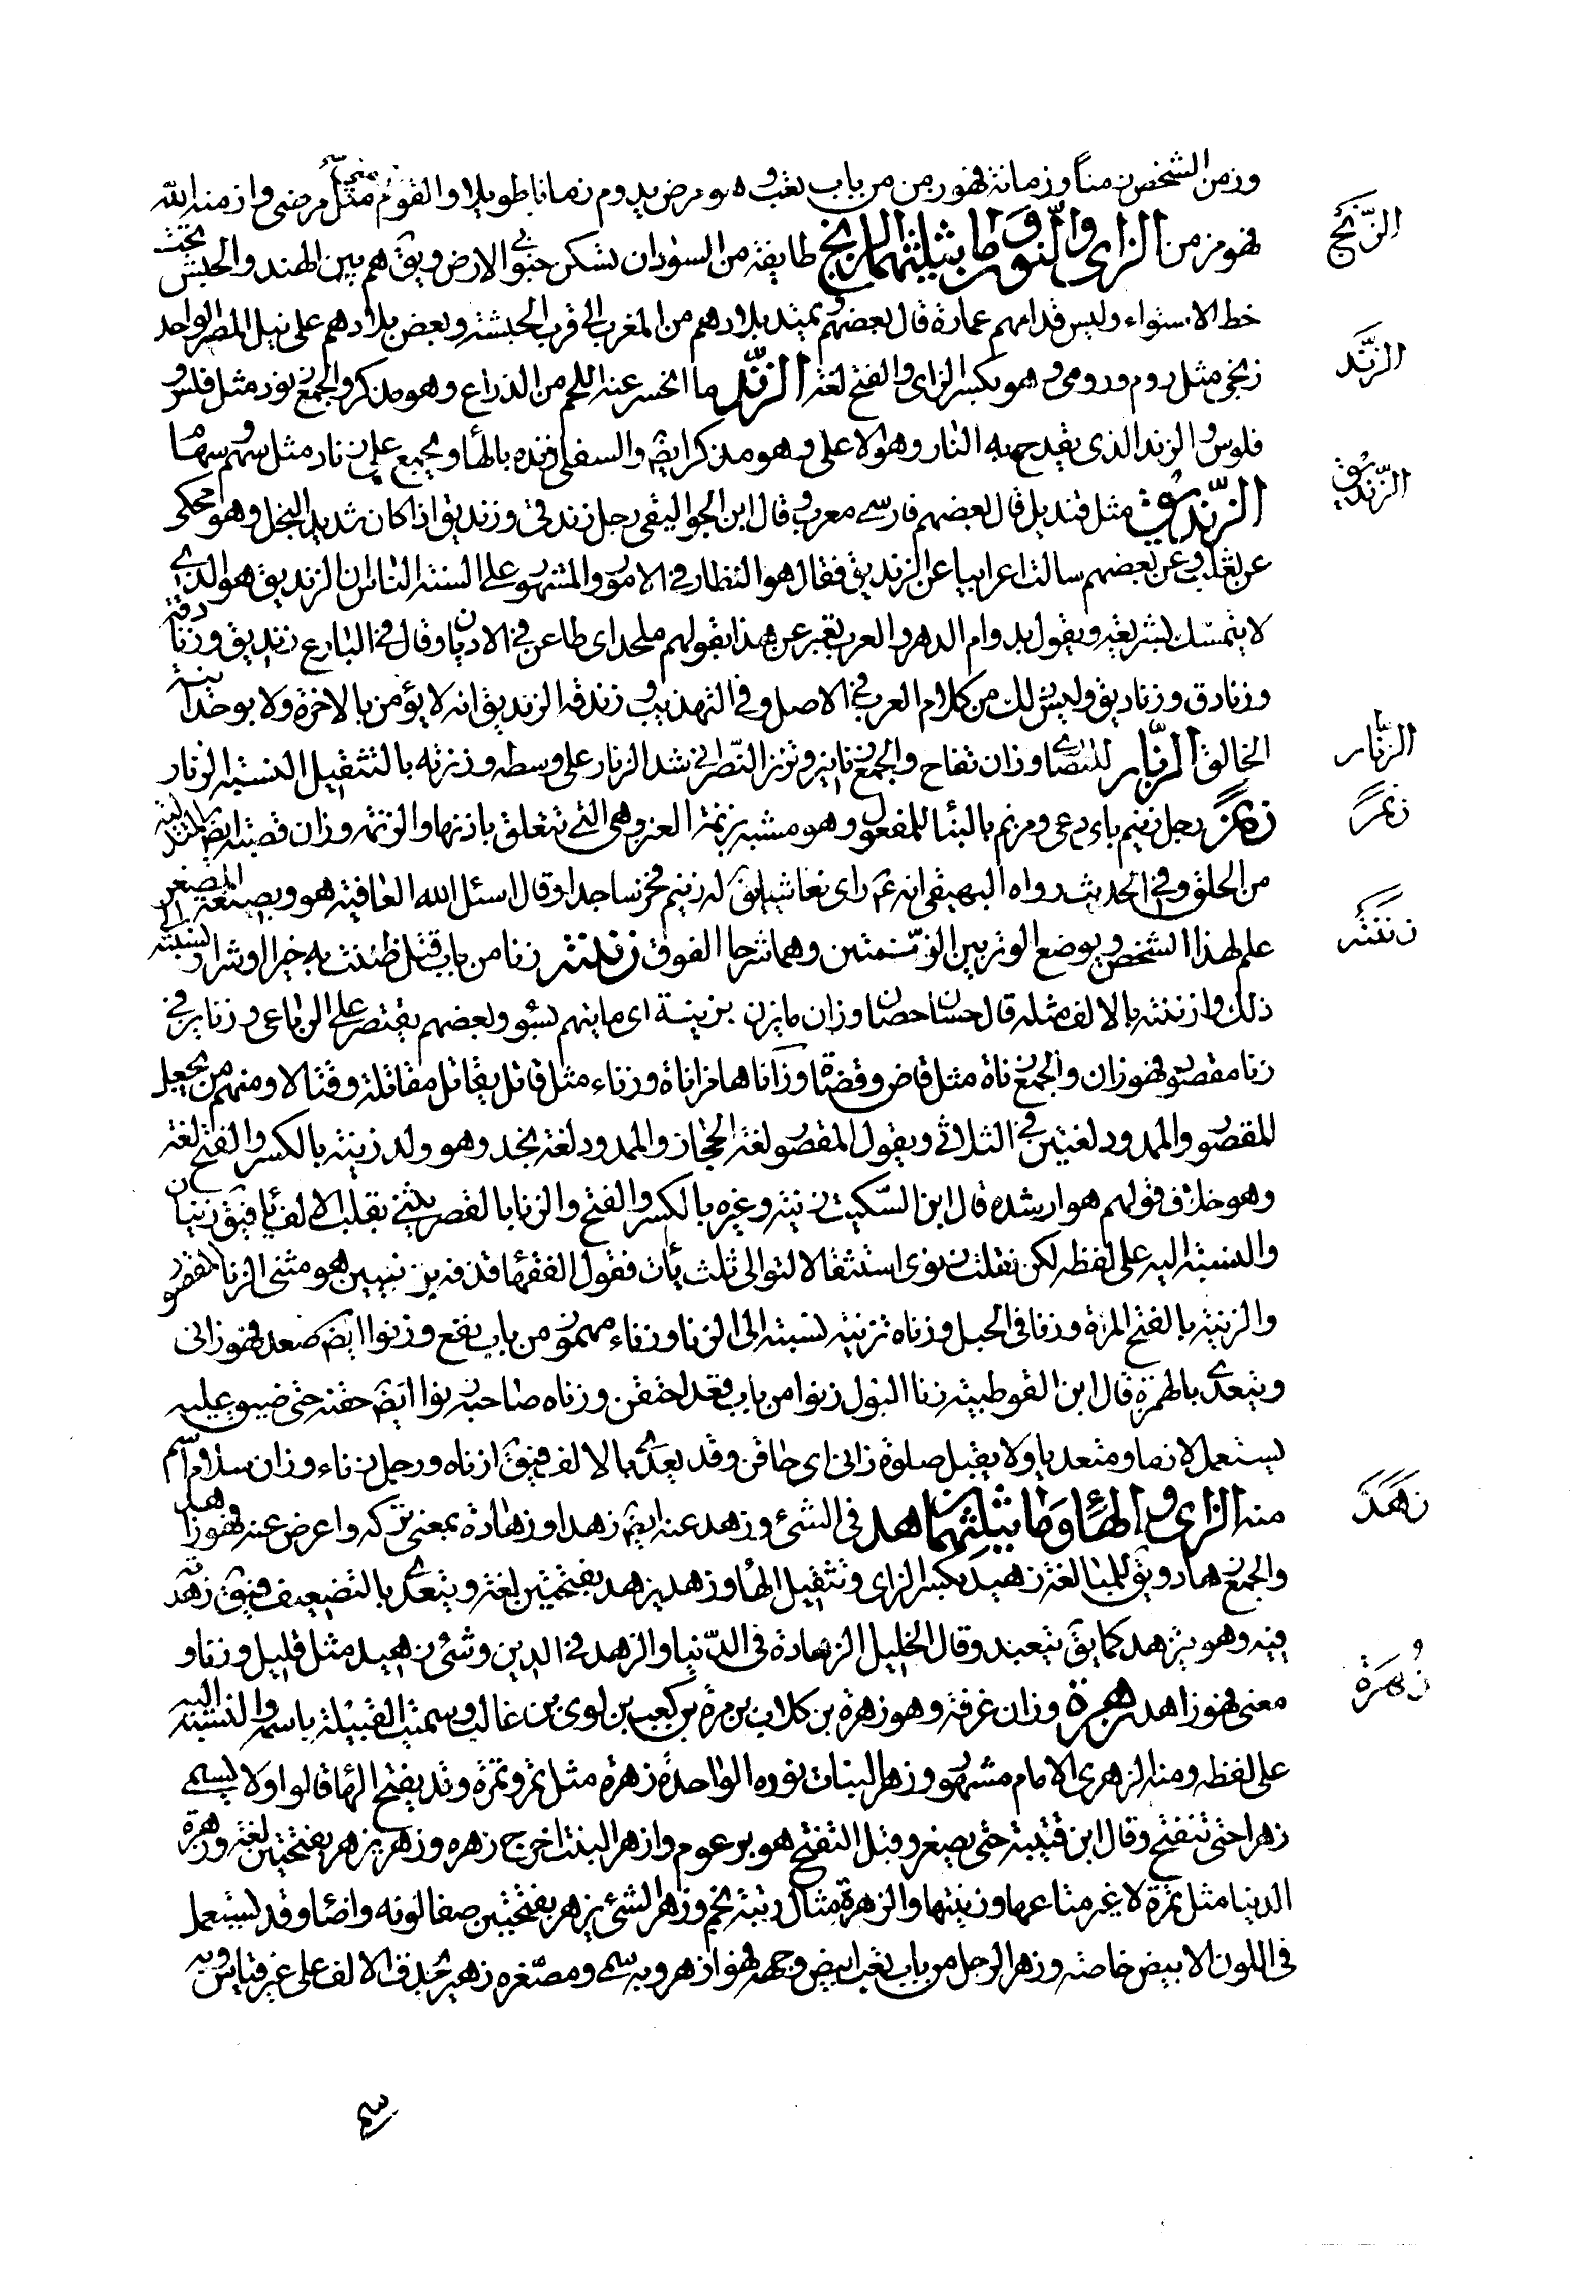 وزمن الشخص زمنا وزمانة فهو زمن من باب تعب وهو مرض يدوم زمانا طويلا والقوم زمنى مثل مرضى وازمنه الله
فهو مزمن الزاى والنون وما يثلثهما الزنج طايفة من السودان تسكن تحت
الزنج
خط الاستواء وليس قدامهم عمارة قال بعضهم وتمتد بلادهم من المغرب الى قرب الحبشة وبعض بلادهم على نيل المصر الواحد
زنجى مثل روم ورومى وهو بكسر الزاى والفتح لغة الزند ما انحسر عنه اللحم من الذراع وهو مذكر والجمع زنود مثل فلس و
الزند
فلوس والزند الذى يقدح به النار وهو الاعلى وهو مذكر ايضا والسفلى زنده بالها ويجمع على زناد مثل سهم وسهام
الزنديق مثل قنديل قال بعضهم فارسى معرب وقال ابن الجواليقى رجل زندقى وزنديق اذا كان شديد البخل وهو محكى
الزنديق
عن ثعلب وعن بعضهم سالت اعرابيا عن الزنديق فقال هو النظار فى الامور والمشهور على السنة الناس ان الزنديق هو الذى
لا يتمسك بشريعة ويقول بدوام الدهر والعرب تعبر عن هذا بقولهم ملحد اى طاعن فى الاديان وقال فى البارع زنديق وزنادقة
وزنادق وزناديق وليس ذلك من كلام العرب فى الاصل وفى التهذيب وزندقة الزنديق انه لا يؤمن بالاخرة ولا بوحدانية
الخالق الزنار للنصارى وزان تفاح والجمع زنانير وتزنر النصرانى شد الزنار على وسطه وزنرته بالتثقيل البسته الزنار
الزنار
زنم رجل زنيم باء دعى ومزنم بالبنا للمفعول وهو مشبه بزنمة العنز وهى التى تتعلق باذنها والزنمة وزان قصبة ايضا المتدلية
زنم
من الحلق وفى الحديث رواه البيهقى انه عم راى نغاشيا يق له زنيم فخر ساجدا وقال اسئل الله العافية هو وبصيغة المصغر
علم لهذا الشخص ويوضع الوتر بين الزنمتين وهما شرجا الفوق زننته زنا من باب قتل ظننت به خيرا او شرا او نسبته الى
زننته
ذلك وازننته بالالف مثله قال حسان حصان رزان ما تزن بريبة اى ما يتهم بسوء وبعضهم يقتصر على الرباعى وزنا يزنى
زنا مقصور فهو زان والجمع زناة مثل قاض وقضاة وزاناها مزاناة وزناء مثل قاتل يقاتل مقاتلة وقتالا ومنهم من يجعل
المقصور والممدود لغتين فى الثلاثى ويقول المقصور لغة الحجاز والممدود لغة نجد وهو ولد زنية بالكسر والفتح لغة
وهو خلاف قولهم هو ارشدة قال ابن السكيت زنية وغيره بالكسر والفتح والزنا بالقصر يثنى بقلب الالف يا فيق زنيان
والنسبة اليه على لفظه لكن تقلب زنوى استثقالا لتوالى ثلث يات فقول الفقها قذفه بزنيين هو مثنى الزنا المقصور
والزنية بالفتح المرة وزنا فى الجبل وزناه تزنية نسبه الى الزنا وزناء مهموز من باب نفع وزنوا ايضا صعد فهو زانى
ويتعدى بالهمزة قال ابن القوطية زنا البول زنوا من باب قعد احتقن وزناه صاحبه زنوا ايضا حقنه حتى ضيق عليه
يستعمل لازما ومتعديا ولا يقبل صلوة زانى اى حاقن وقد يعدى بالالف فيق ازناه ورجل زناء وزان سلام اسم
منه الزاى والهاء وما يثلثهما زهد فى الشئ وزهد عنه ايضا زهدا وزهادة بمعنى تركه واعرض عنه فهو زاهد
زهد
والجمع زهاد ويق للمبالغة زهيد بكسر الزاى وتثقيل الها وزهد يزهد بفتحتين لغة ويتعدى بالتضعيف فيق زهدته
فيه وهو يتزهد كما يق يتعبد وقال الخليل الزهادة فى الدنيا والزهد فى الدين وشئ زهيد مثل قليل وزنا و
معنى فهو زاهد زهرة وزان غرفة وهو زهرة بن كلاب بن مرة بن كعب بن لوى بن غالب وسميت القبيلة باسمه والنسبة اليه
زهرة
على لفظه ومنه الزهرى الامام مشهور وزهر النبات نوره الواحدة زهرة مثل تمر وتمرة وقد يفتح الها قالوا ولا يسمى
زهرا حتى تتفتح وقال ابن قتيبة حتى يصفر وقبل التفتح هو برعوم وازهر النبت اخرج زهره وزهر يزهر بفتحتين لغة وزهرة
الدنيا مثل تمرة لا غير متاعها وزينتها والزهرة مثال رتبة نجم وزهر الشئ يزهر بفتحتين صفا لونه واضا وقد يستعمل
فى اللون الابيض خاصة وزهر الرجل من باب تعب ابيض وجهه فهو ازهر وبه سمى ومصغره زهير بحذف الالف على غير قياس وبه
سمى